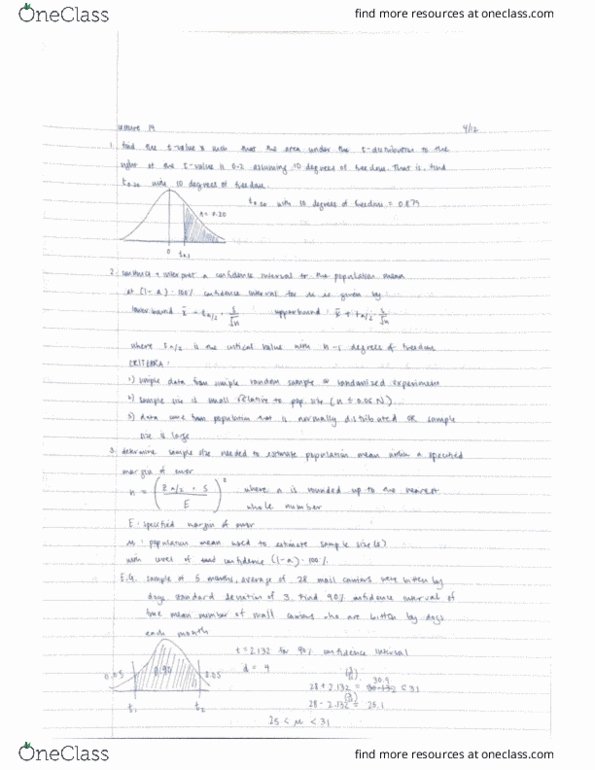 OneClass
find more resources at oneclass.com
Lecture 19 4/12
1. find the t-value such that the area under the t-distribution to the
right of the t-value is 0.2 assuming 10 degrees of freedom. That is, find
t0.20 with 10 degrees of freedom.
t0.20 with 10 degrees of freedom = 0.879
A = 0.20
0
2. construct + interpret a confidence interval for the population mean
(1-α)·100% confidence interval for μ is given by
lower bound x̄ - tα/2 · s/√n upper bound: x̄ + tα/2 · s/√n
where tα/2 is the critical value with n-1 degrees of freedom
CRITERIA:
1) sample data from simple random sample or randomized experiment
2) sample size is small relative to pop. size (n ≤ 0.05 N)
3) data come from population that is normally distributed OR sample
size is large
3. determine sample size needed to estimate population mean within a specified
margin of error
n = (zα/2 · s / E)² where n is rounded up to the nearest
whole number
E: specified margin of error
μ: population mean used to estimate sample size(s)
with level of confidence (1-α)·100%
E.G. sample of 5 months, average of 28 mail carriers were bitten by
dogs, standard deviation of 3. Find 90% confidence interval of
true mean number of mail carriers who are bitten by dogs
each month
t = 2.132 for 90% confidence interval
d = 4
0.05 0.90 0.05
t1 t2
30.9
28 + 2.132 = ≤ 31
28 - 2.132 = 25.1
25 < μ < 31
OneClass
find more resources at oneclass.com